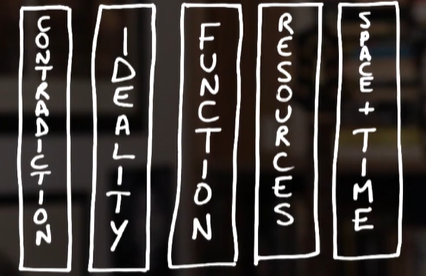 CONTRADICTION
IDEALITY
FUNCTION
RESOURCES
SPACE + TIME